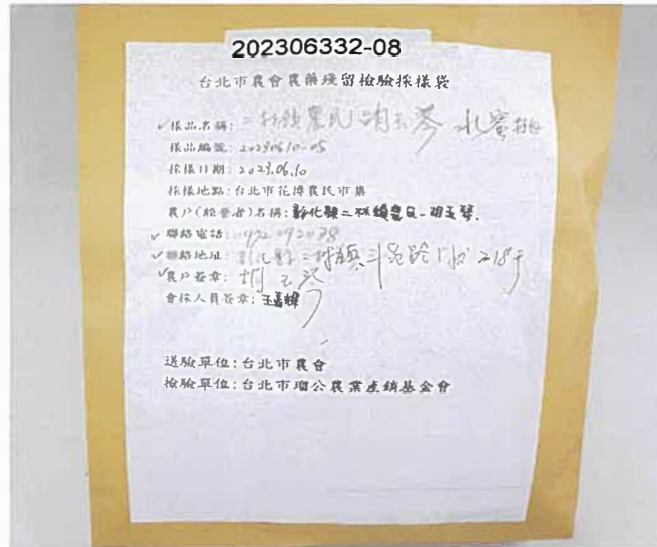 202306332-08
台北市農會農藥殘留檢驗採樣袋
✓樣品名稱：二林鎮農民 胡玉琴 水蜜桃
樣品編號：20230610-05
採樣日期：2023.06.10
採樣地點：台北市花博農民市集
農戶(經營者)名稱：彰化縣二林鎮農民-胡玉琴.
✓聯絡電話：
✓聯絡地址：彰化縣二林鎮斗苑路
✓農戶簽章：胡玉琴
會採人員簽章：
送驗單位：台北市農會
檢驗單位：台北市瑠公農業產銷基金會